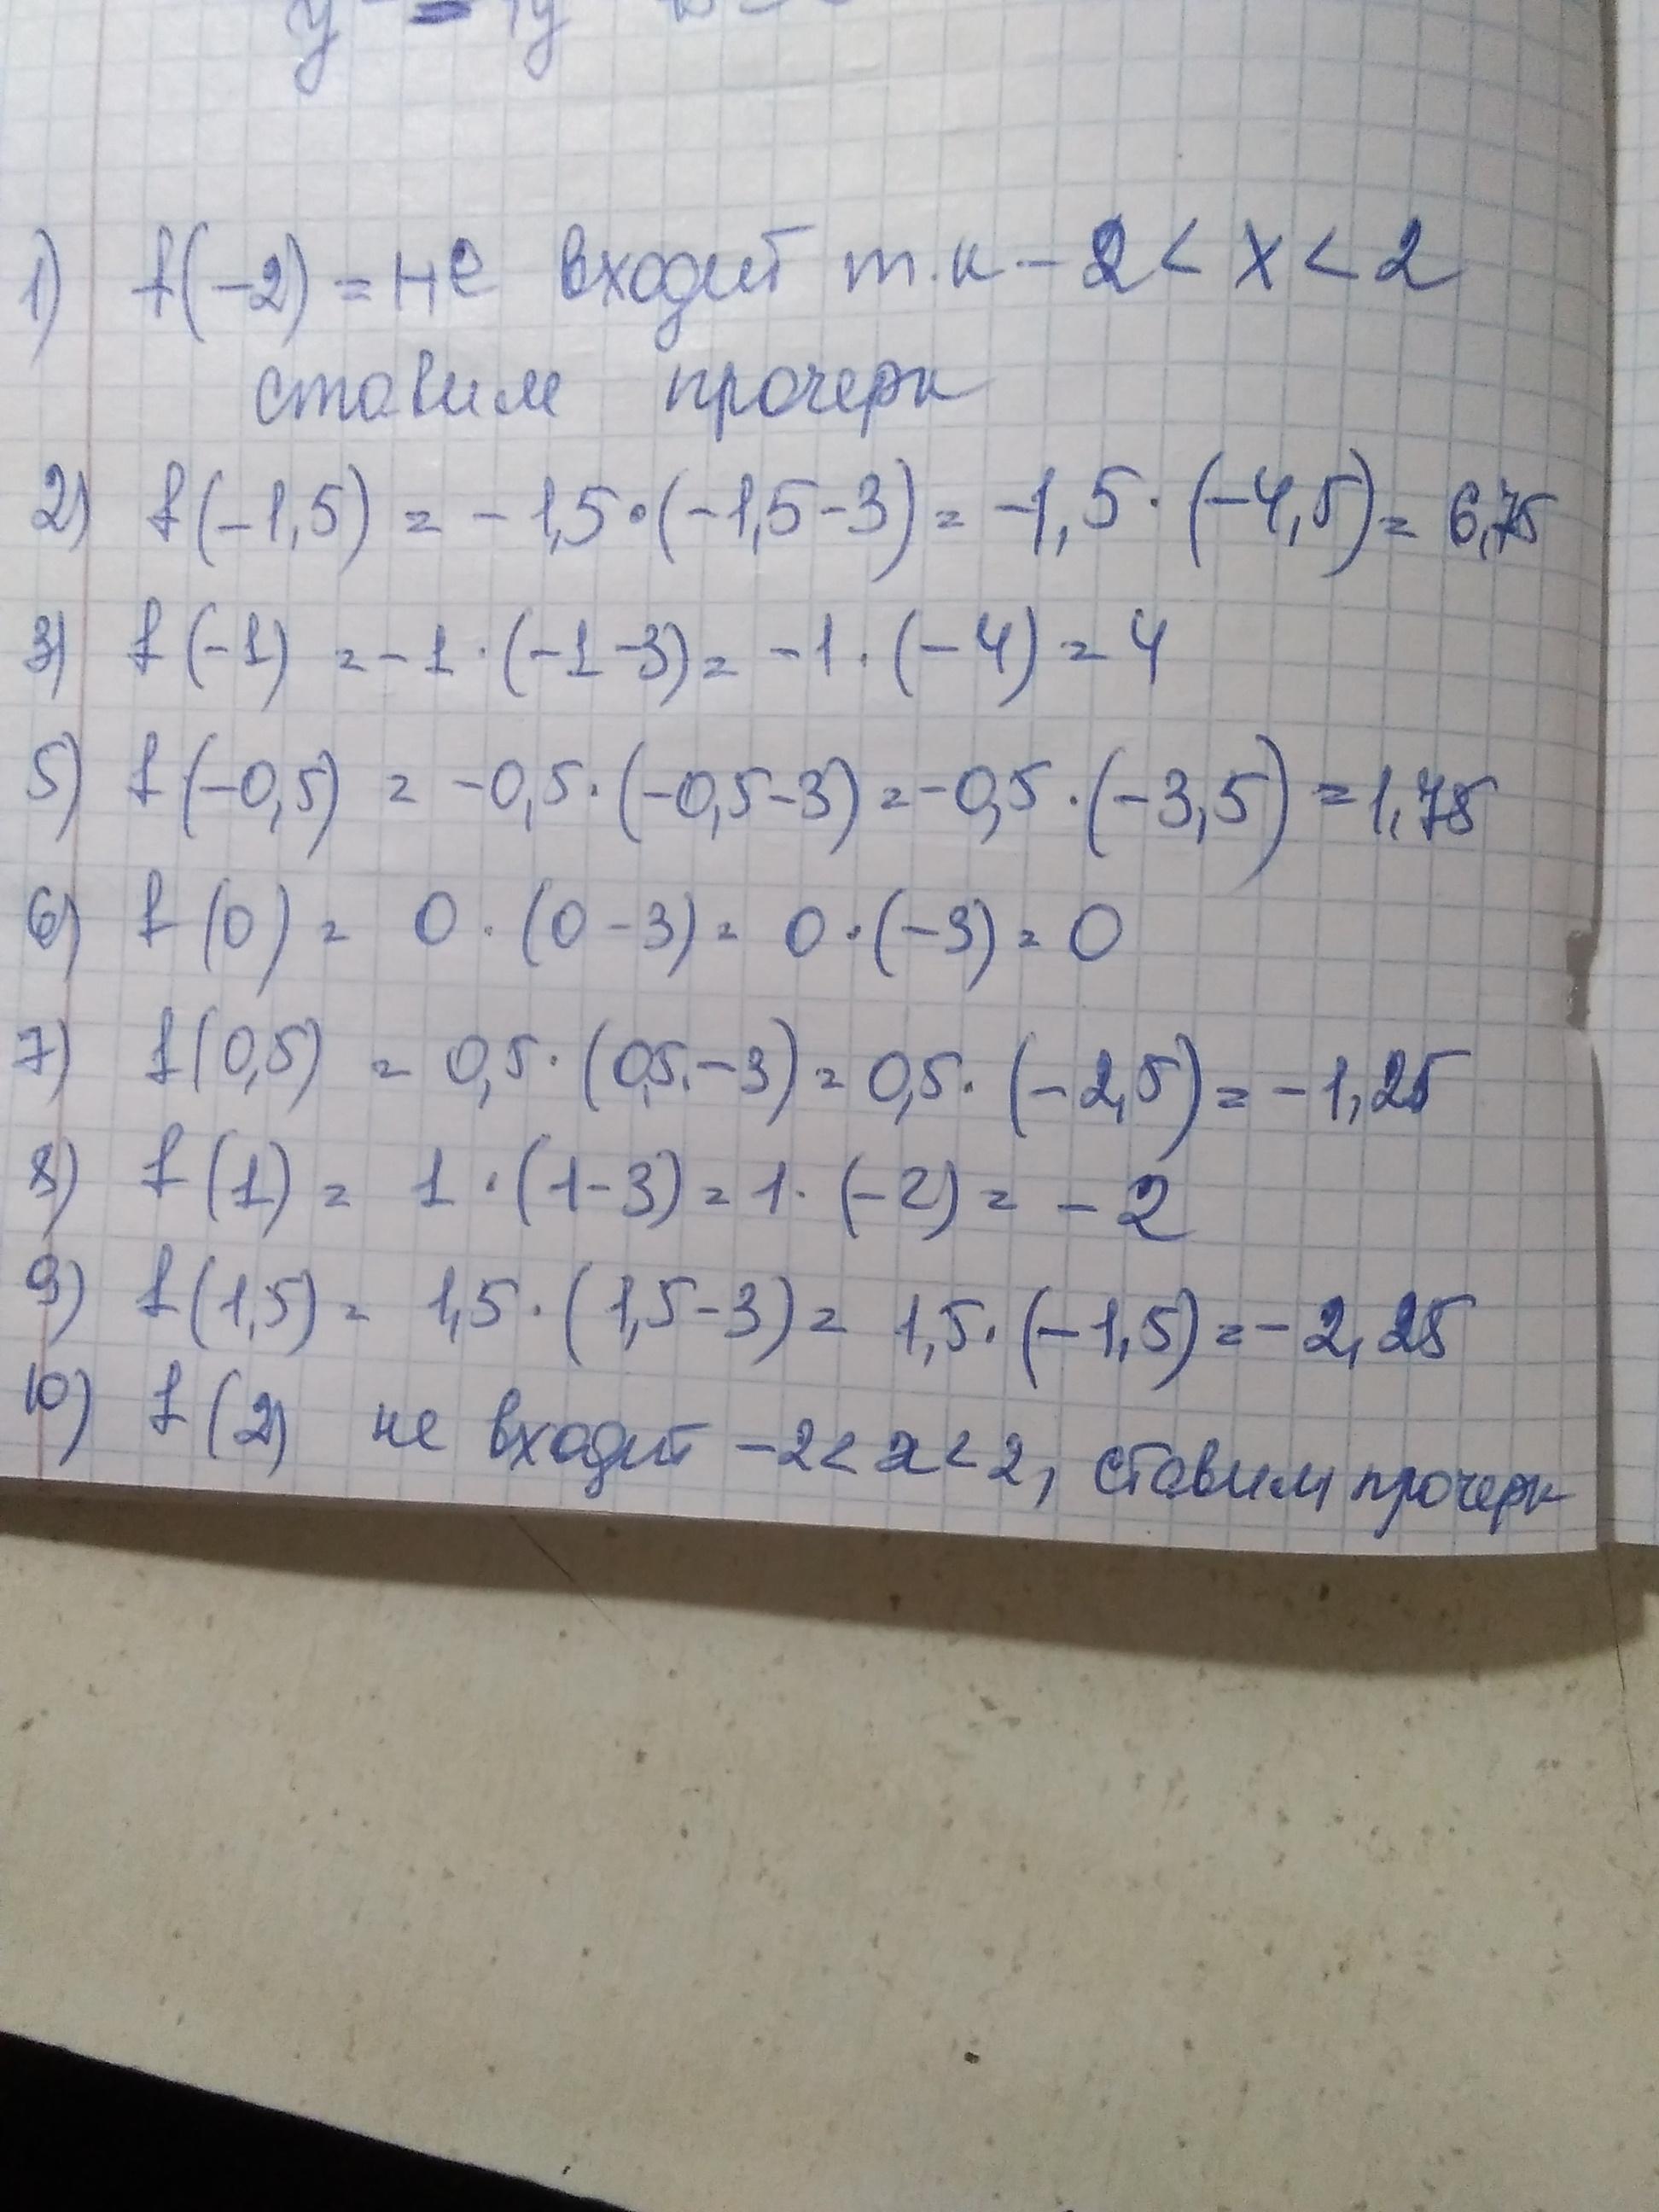 1) f(-2) = не входит т.к -2 < x < 2
ставим прочерк
2) f(-1,5) = -1,5·(-1,5-3) = -1,5·(-4,5) = 6,75
3) f(-1) = -1·(-1-3) = -1·(-4) = 4
5) f(-0,5) = -0,5·(-0,5-3) = -0,5·(-3,5) = 1,75
6) f(0) = 0·(0-3) = 0·(-3) = 0
7) f(0,5) = 0,5·(0,5-3) = 0,5·(-2,5) = -1,25
8) f(1) = 1·(1-3) = 1·(-2) = -2
9) f(1,5) = 1,5·(1,5-3) = 1,5·(-1,5) = -2,25
10) f(2) не входит -2<x<2, ставим прочерк